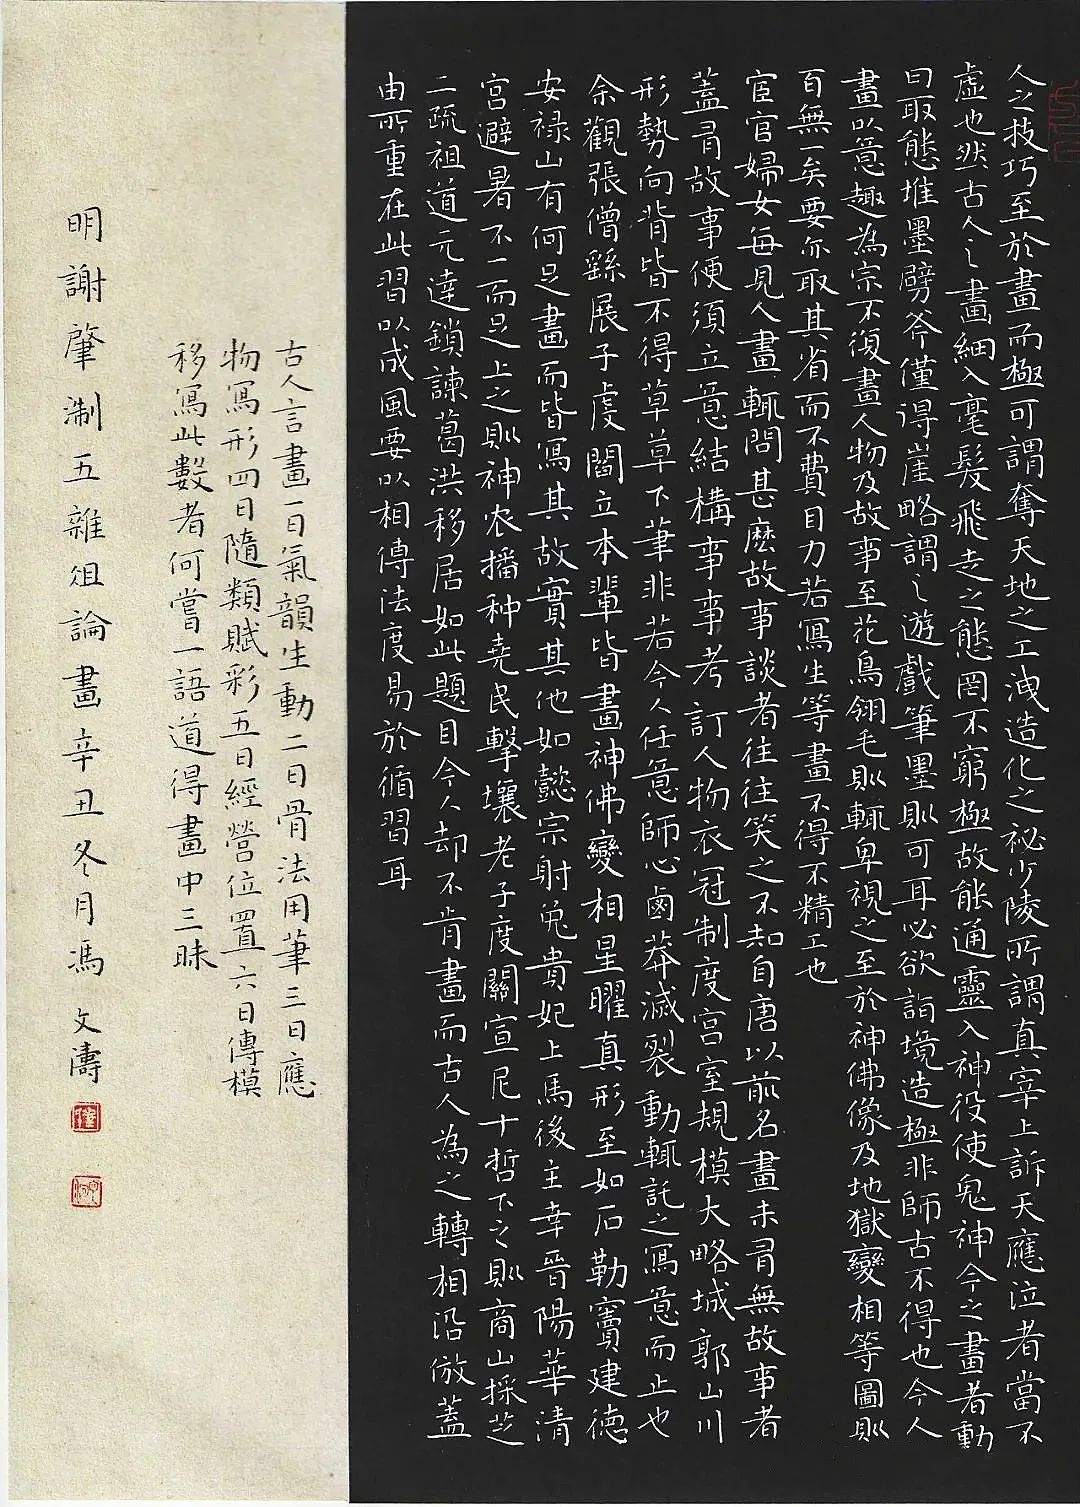 人之技巧至於畫而極可謂奪天地之工洩造化之祕少陵所謂真宰上訴天應泣者當不
虛也然古人之畫細入毫髮飛走之態罔不窮極故能通靈入神役使鬼神今之畫者動
曰取態堆墨劈斧僅得崖略謂之遊戲筆墨則可耳必欲詣境造極非師古不得也今人
畫以意趣為宗不復畫人物及故事至花鳥翎毛則輒卑視之至於神佛像及地獄變相等圖則
百無一矣要亦取其省而不費目力若寫生等畫不得不精工也
宦官婦女每見人畫輒問甚麼故事談者往往笑之不知自唐以前名畫未有無故事者
蓋有故事便須立意結構事事考訂人物衣冠制度宮室規模大略城郭山川
形勢向背皆不得草草下筆非若今人任意師心鹵莽滅裂動輒託之寫意而止也
余觀張僧繇展子虔閻立本輩皆畫神佛變相星曜真形至如石勒竇建德
安祿山有何足畫而皆寫其故實其他如懿宗射兔貴妃上馬後主幸晉陽華清
宮避暑不一而足上之則神农播种堯民擊壤老子度關宣尼十哲下之則商山採芝
二疏祖道元達鎖諫葛洪移居如此題目今人却不肯畫而古人為之轉相沿倣蓋
由所重在此習以成風要以相傳法度易於循習耳
古人言畫一曰氣韻生動二曰骨法用筆三曰應
物寫形四曰隨類賦彩五曰經營位置六曰傳模
移寫此數者何嘗一語道得畫中三昧
明謝肇淛五雜俎論畫辛丑冬月馮文濤